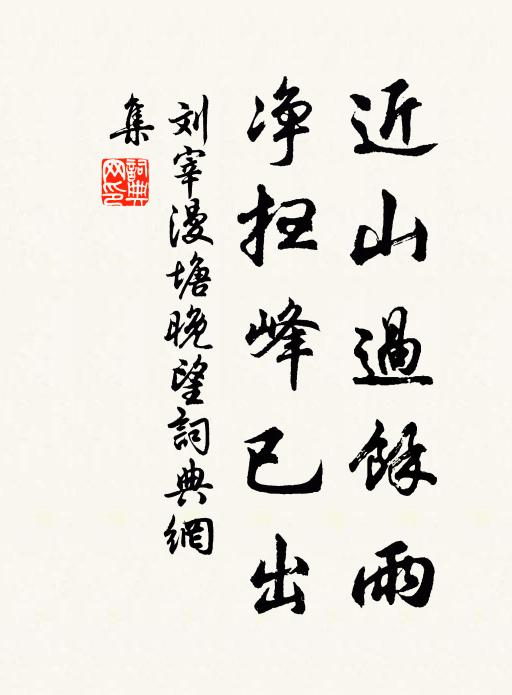 近山過餘雨
净峰已出
刘宰漫塘晚望詞典網
集
詞典
网印